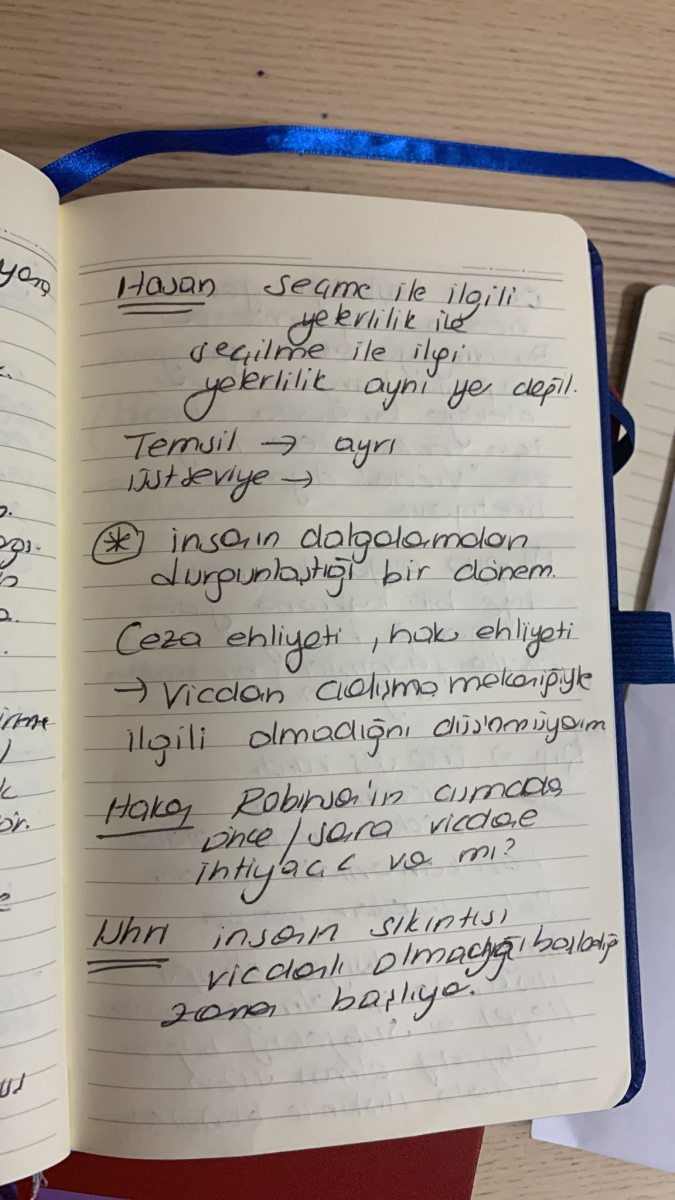 Hasan seçme ile ilgili
yeterlilik ile
seçilme ile ilgi
yeterlilik aynı yer değil.
Temsil → ayrı
üst seviye →
* insanın dalgalamadan
durgunlaştığı bir dönem.
Ceza ehliyeti, hak ehliyeti
→ Vicdan çalışma mekaniğiyle
ilgili olmadığını düşünmüyorum
Hakan Robinson'ın cumadan
önce / sonra vicdana
ihtiyacı var mı?
insanın sıkıntısı
vicdanlı olmadığı başladığı
zaman başlıyor.